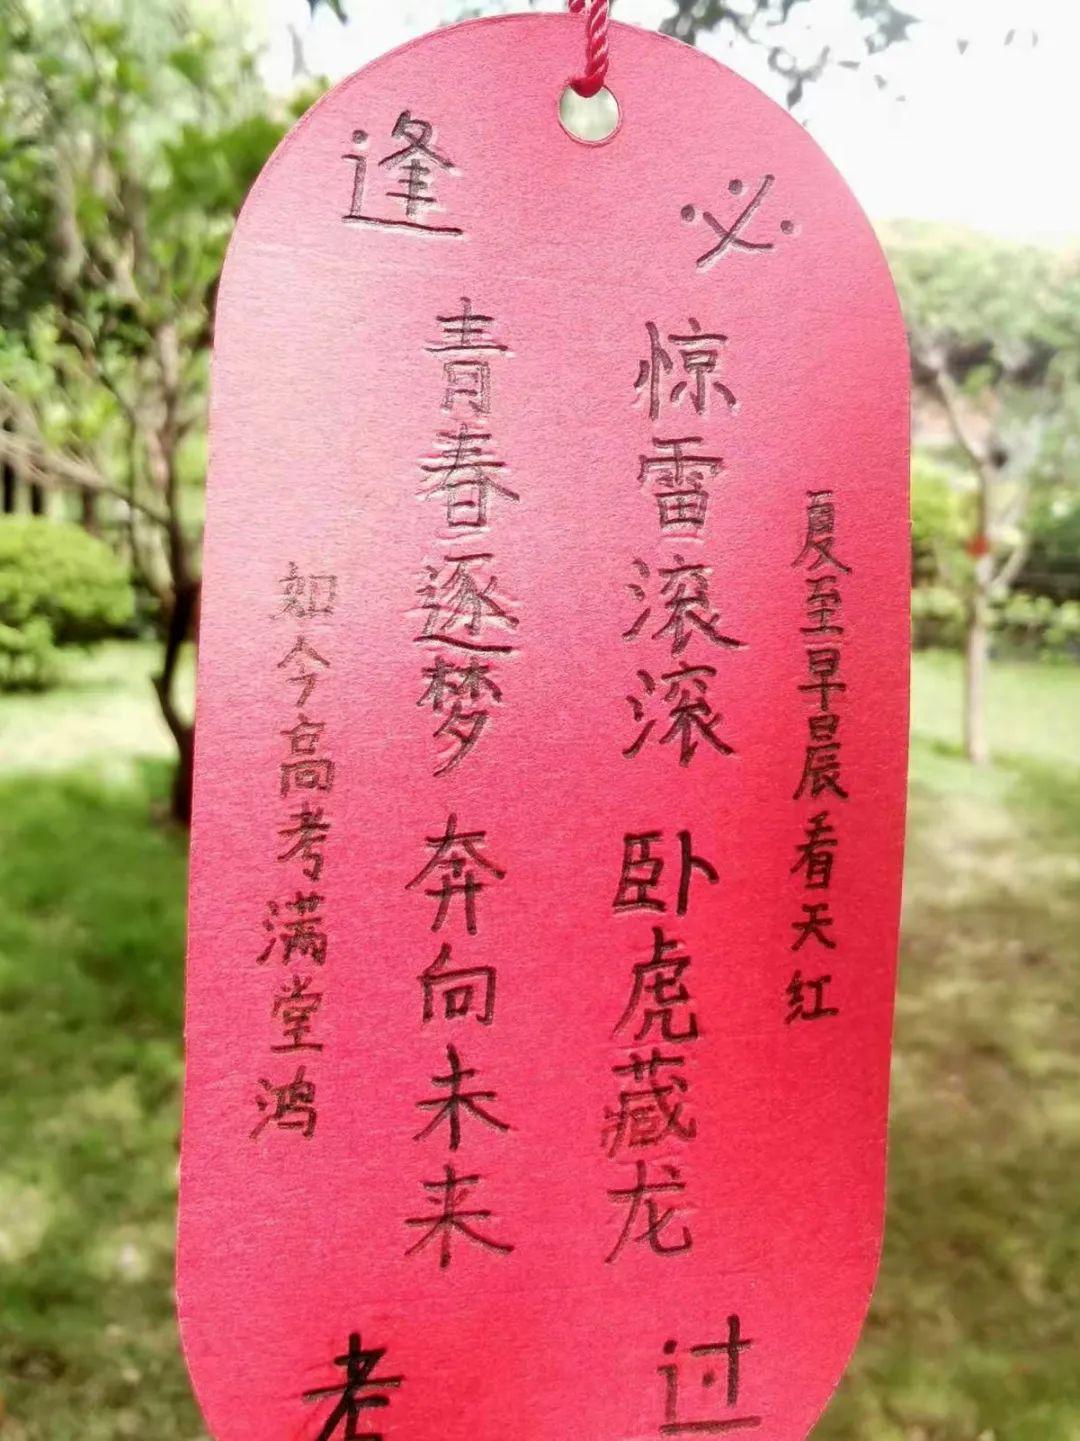 逢考
必过
夏至早晨看天红
惊雷滚滚 卧虎藏龙
青春逐梦 奔向未来
如今高考满堂鸿